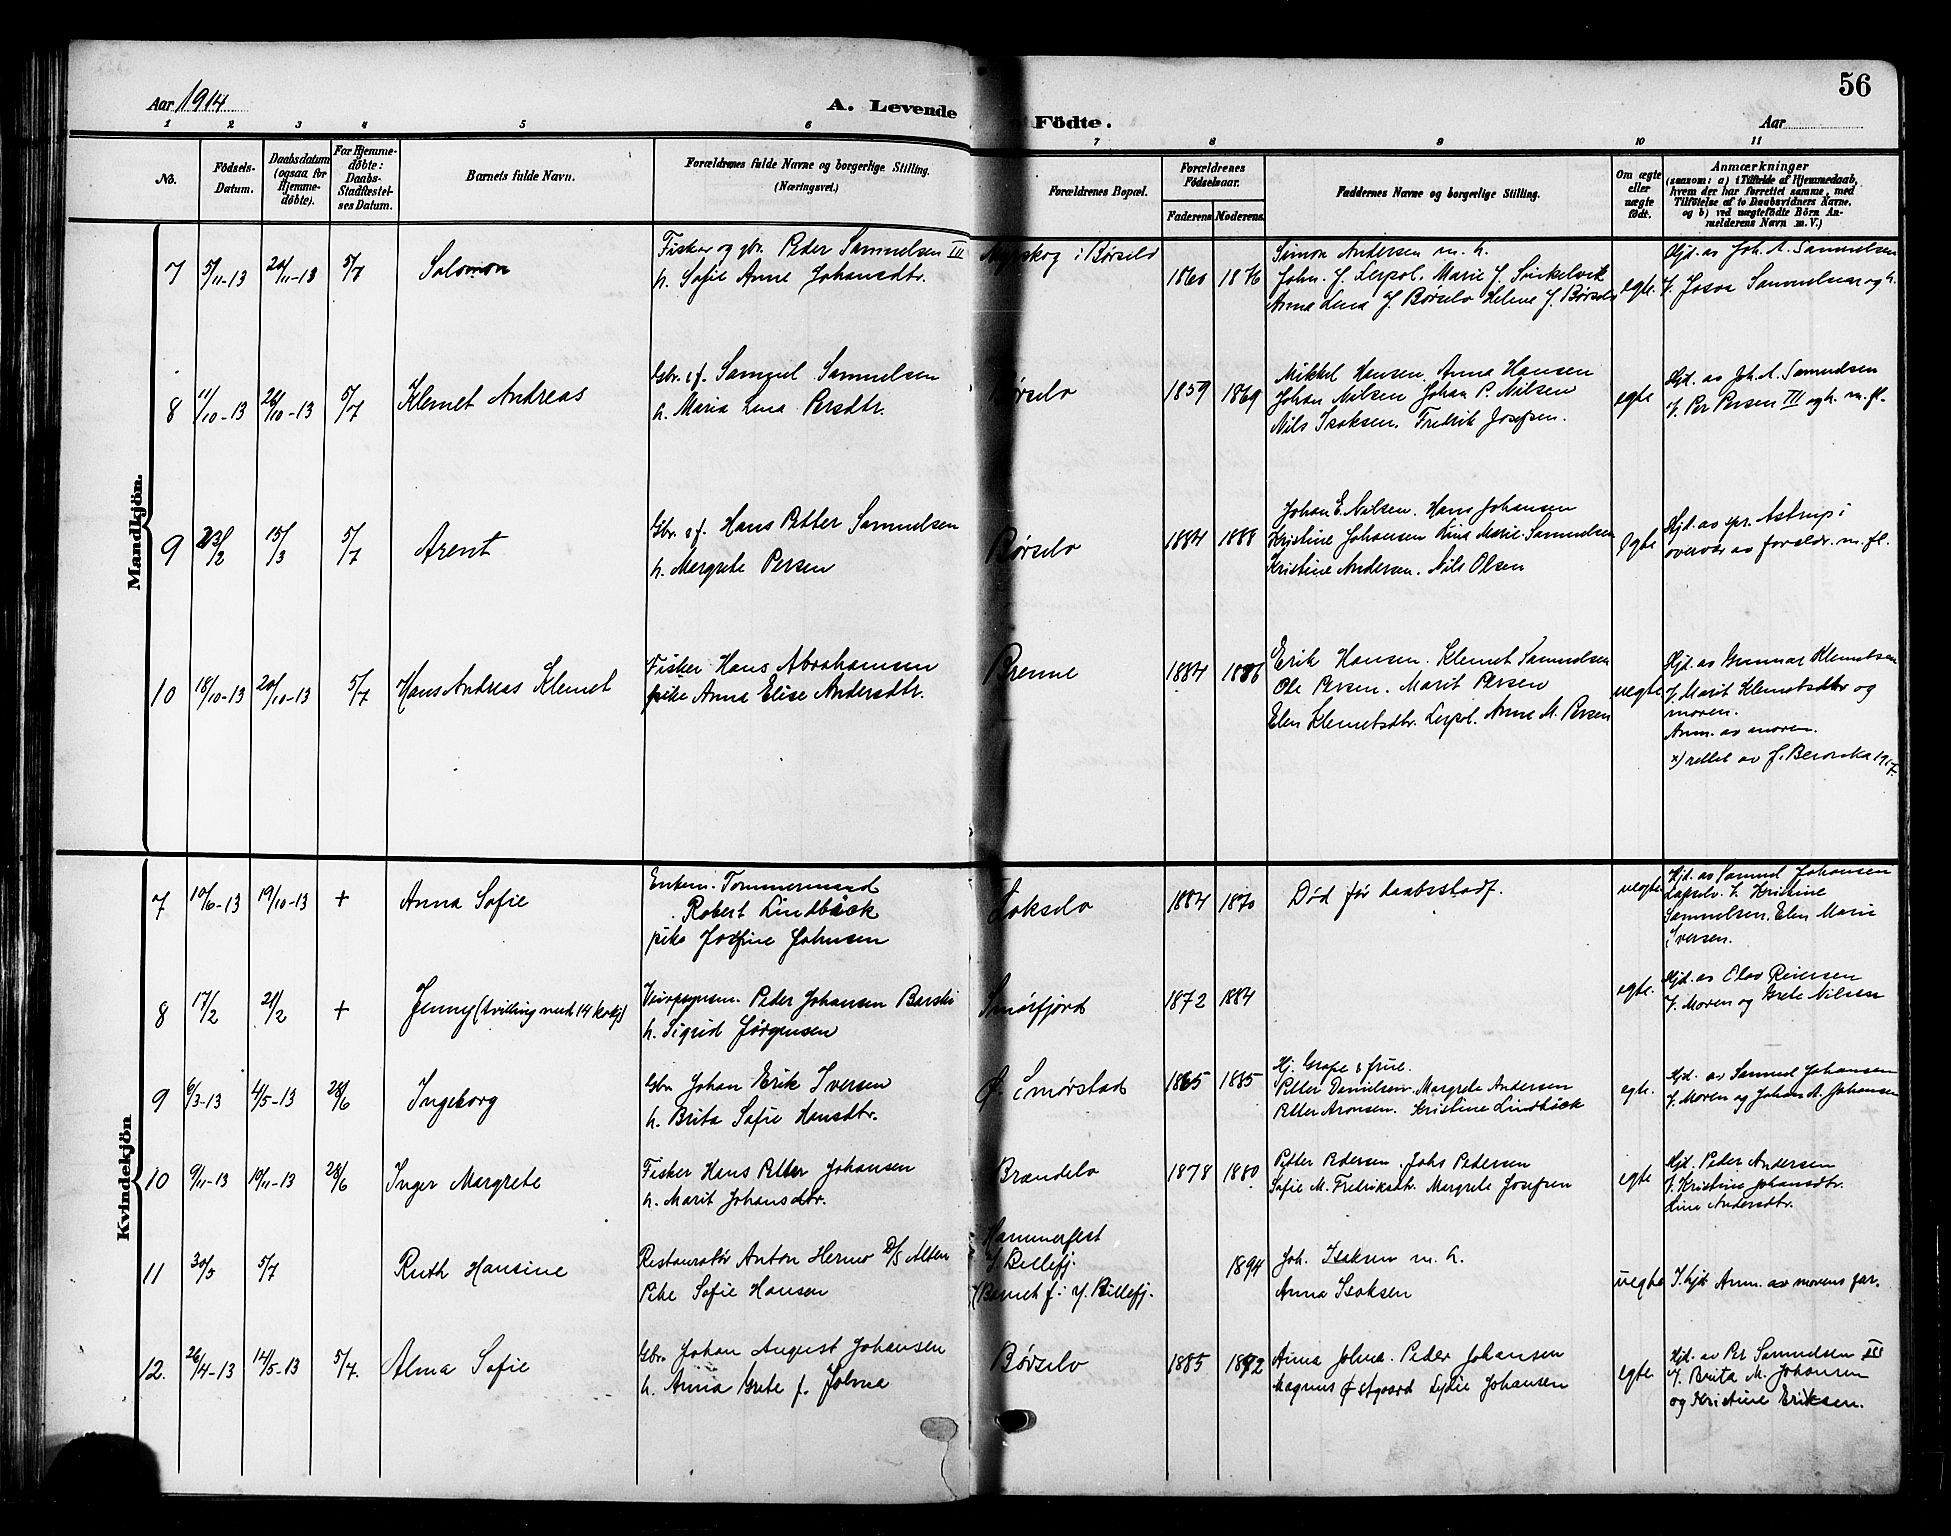 56
Aar 1914
A. Levende Födte.
Aar
1 2 3 4 5 6 7 8 9 10 11
No.
Födsels-
Datum.
Daabsdatum
(ogsaa for
Hjemme-
döbte).
For Hjemme-
döbte:
Daabs-
Stadfæstel-
ses Datum.
Barnets fulde Navn.
Forældrenes fulde Navne og borgerlige Stilling.
(Næringsvei.)
Forældrenes Bopæl.
Forældrenes
Födselsaar.
Faderens Moderens
Faddernes Navne og borgerlige Stilling.
Om ægte
eller
uægte
födt.
Anmærkninger
(saasom: a) i Tilfælde af Hjemmedaab,
hvem der har forrettet samme, med
Tilföielse af to Daabsvidners Navne,
og b) ved uægtefödte Börn An-
melderens Navn m. V.)
Mandkjön.
7 5/11-13 5/7 Salomon
Fisker og gbr. Peder Samuelsen III
h. Sofie Anne Johansdtr.
i Børselv
1860 1876
Simon Andersen m. h.
John. J. Leirpol. Marie J.
Anna Lena J. Børselv Helene J. Børselv
egte.
Hjd. av Joh. A. Samuelsen
V. Josva Samuelsen og h.
8 11/10-13 26/10-13 5/7 Klemet Andreas
Gbr. s f. Samuel Samuelsen
h. Maria Lena Persdtr.
Børselv
1859 1869
Mikkel Hansen. Anna Hansen
Johan Nilsen Johan P. Nilsen
Nils Isaksen. Fredrik Josefsen.
egte
Hjd. av Joh. A. Samuelsen
V. Per Persen III og h. m. fl.
9 23/2 15/3 5/7 Arent
Gbr. s f. Hans Petter Samuelsen
h. Margrete Persen
Børselv
1884 1888
Johan E. Nilsen. Hans Johansen
Kristine Johansen Lina Marie Samuelsen
Kristine Andersen. Nils Olsen
egte
Hjd. av spr. Astrup i
overvær av foreldr. m. fl.
10 18/10-13 20/10-13 5/7 Hans Andreas Klemet
Fisker Hans Abrahamsen
pike Anna Elise Andersdtr.
Brenne
1884 1886
Erik Hansen. Klemet Samuelsen
Ole Persen. Marit Persen
Elen Klemetsdtr. Leirpol. Anne M. Persen
uegte
Hjd. av Gunnar Klemetsen
V. Marit Klemetsdtr og
moren.
Anm. av moren.
x) rettet av J. Beronka 1917.
Kvindekjön
7 10/6-13 19/10-13 + Anna Sofie
Enkem. Tømmermand
Robert Lindbäck
pike Josefine Johnsen
Lakselv
1884 1870
Død før daabsstadf.
uegte
Hjd. av Samuel Johansen
Lakselv. V. Kristine
Samuelsen. Elen Marie
Iversen.
8 17/2 21/2 + Jenny (tvilling med 14
Peder Johansen
h. Sigrid Jørgensen
Smørfjord
1872 1884
egte.
Hjd. av Olav Reiersen
V. Moren og Grete Nilsen
9 6/3-13 4/5-13 28/6 Ingeborg
Gbr Johan Erik Iversen
h. Brita Sofie Hansdtr.
Ø. Smørstad
1865 1885
Hj. Grape & frue.
Petter Danielsen. Margrete Andersen
Petter Aronsen. Kristine Lindbäck
egte.
Hjd. av Samuel Johansen
V. Moren og Johan A. Johansen
10 9/11-13 19/11-13 28/6 Inger Margrete
Fisker Hans Petter Johansen
h. Marit Johansdtr.
Brændelv
1878 1880
Petter Pedersen. Johs Pedersen
Sofie M. Fredriksdtr. Margrete Josefsen
egte
Hjd. Peder Andersen
V. Kristine Johansdtr.
Line Andersdtr.
11 30/5 5/7 Ruth Hansine
Restauratør Anton Hermo D/S Alten
Pike Sofie Hansen
Hammerfest
Y. Billefj.
(Barnet f. i Y. Billefj.
1894
Joh. Isaksen m. h.
Anna Isaksen
uegte
I. hjd. Anm. av morens far.
12. 26/4-13 14/5-13 5/7. Alma Sofie
Gbr. Johan August Johansen
h. Anna Grete f. Jolma
Børselv
1885 1892
Anna Jolma. Peder Johansen
Magnus Østgaard Lydie Johansen
egte
Hjd. av Per Samuelsen III
V. Brita M. Johansen
og Kristine Eriksen.